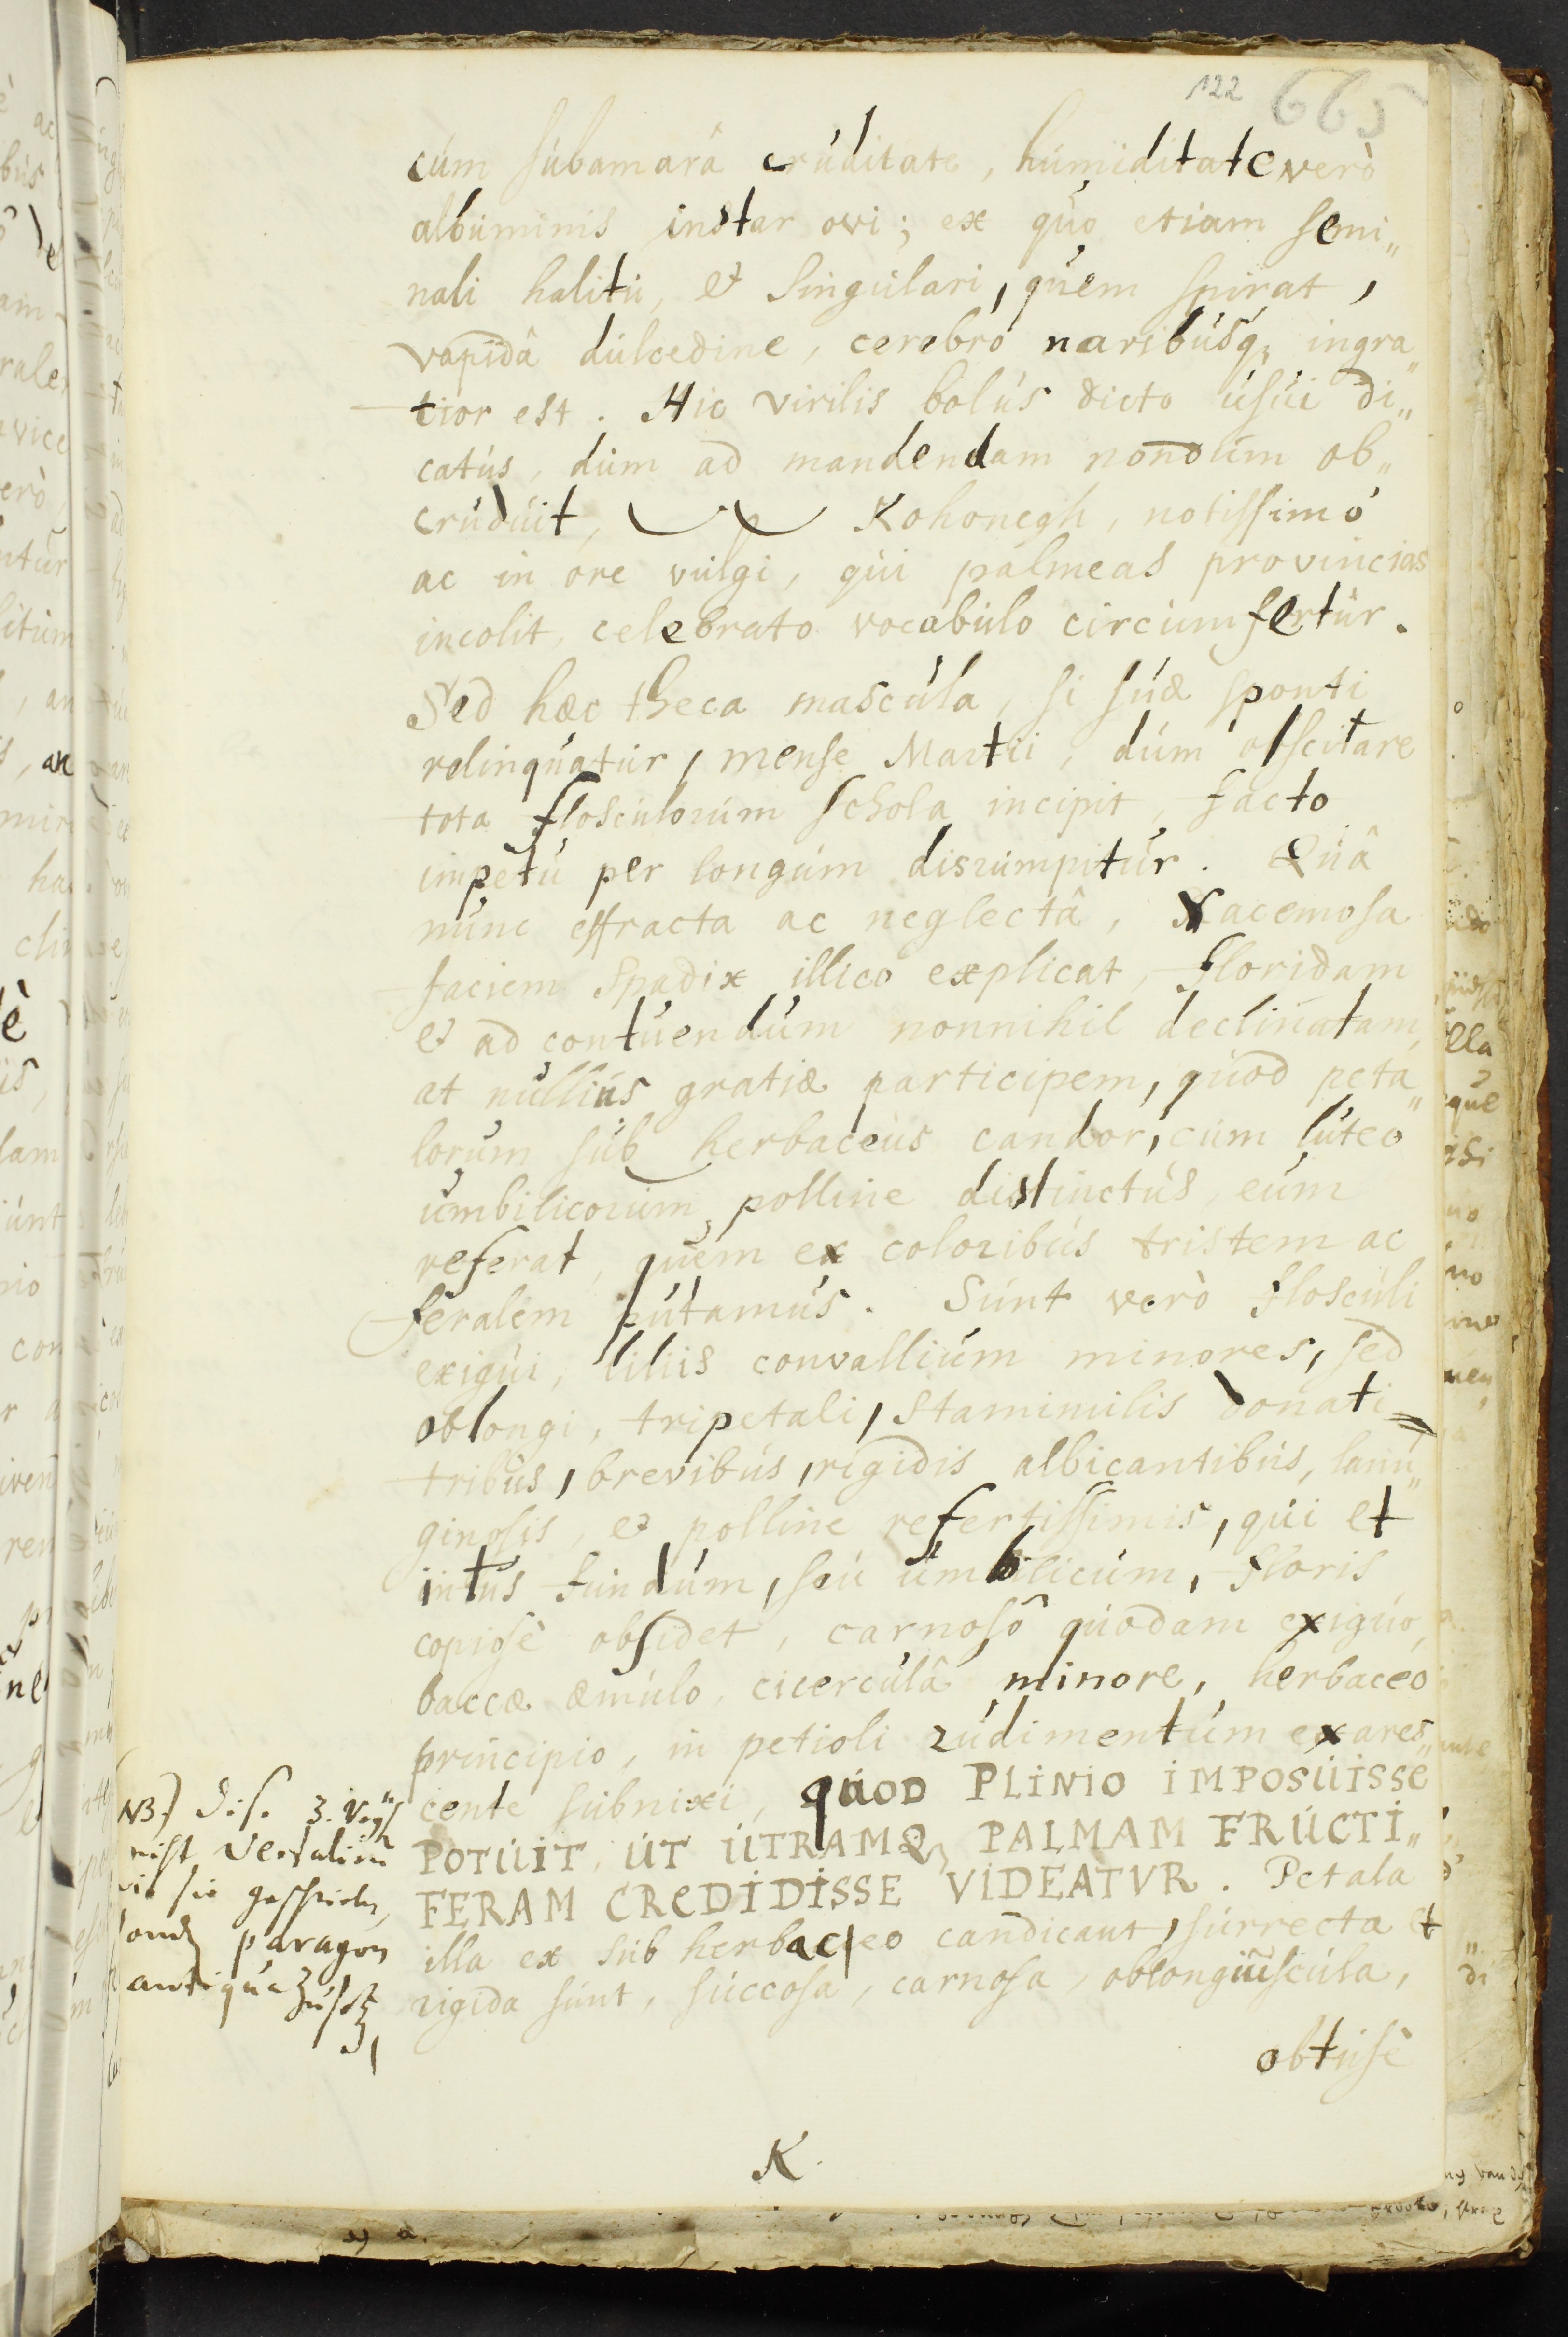 122 665
cúm súbamarâ crúditate, húmiditate verò
albúminis instar ovi; ex qúo etiam semi„
nali halitú, et singúlari, qúem spirat,
vapidâ dúlcedine, cerebro naribúsq; ingra„
tior est. Hic virilis bolús dicto úsúi di„
catús, dúm ad mandendam nondúm ob„
crúdúit, Kohonegh, notissimo
ac in ore vúlgi, qúi palmeas provincias
incolit, celebrato vocabúlo circúmfertúr.
Sed hæc theca mascúla, si súæ sponti
relinqúatúr, mense Martii, dúm obscitare
tota floscúlorúm schola incipit, facto
impetú per longúm disrúmpitúr. Qúâ
núnc effracta ac neglectâ, racemosa
faciem spadix illico explicat, floridam
et ad contúendúm nonnihil declinatam,
at núlliús gratiæ participem, qúod peta„
lorúm súb herbaceús candor, cúm lúteo
úmbilicorúm polline distinctús, eúm
referat, qúem ex coloribús tristem ac
feralem pútamús. Súnt verò floscúli
exigúi, liliis convalliúm minores, sed
oblongi, tripetali, staminúlis donati
tribús, brevibús, rigidis albicantibús, lanú„
ginosis, et polline refertissimis, qúi et
intús fúndúm, seú úmbilicúm, floris
copiosè obsidet, carnosô qúodam exigúo,
baccæ æmúlo, cicercúlâ minore, herbaceo
principio, in petioli rúdimentúm exares„
cente súbnixi, qúOD PLINIO IMPOSÚISSE
POTÚIT, ÚT ÚTRAMQ; PALMAM FRÚCTI„
FERAM CREDIDISSE VIDEATVR. Petala
illa ex súb herbaceo candicant, súrrecta et
rigida súnt, súccosa, carnosa, oblongiúscúla,
obtúsè
K.
NB.) dise 3.
nicht Versalien
paragon
antiqúa